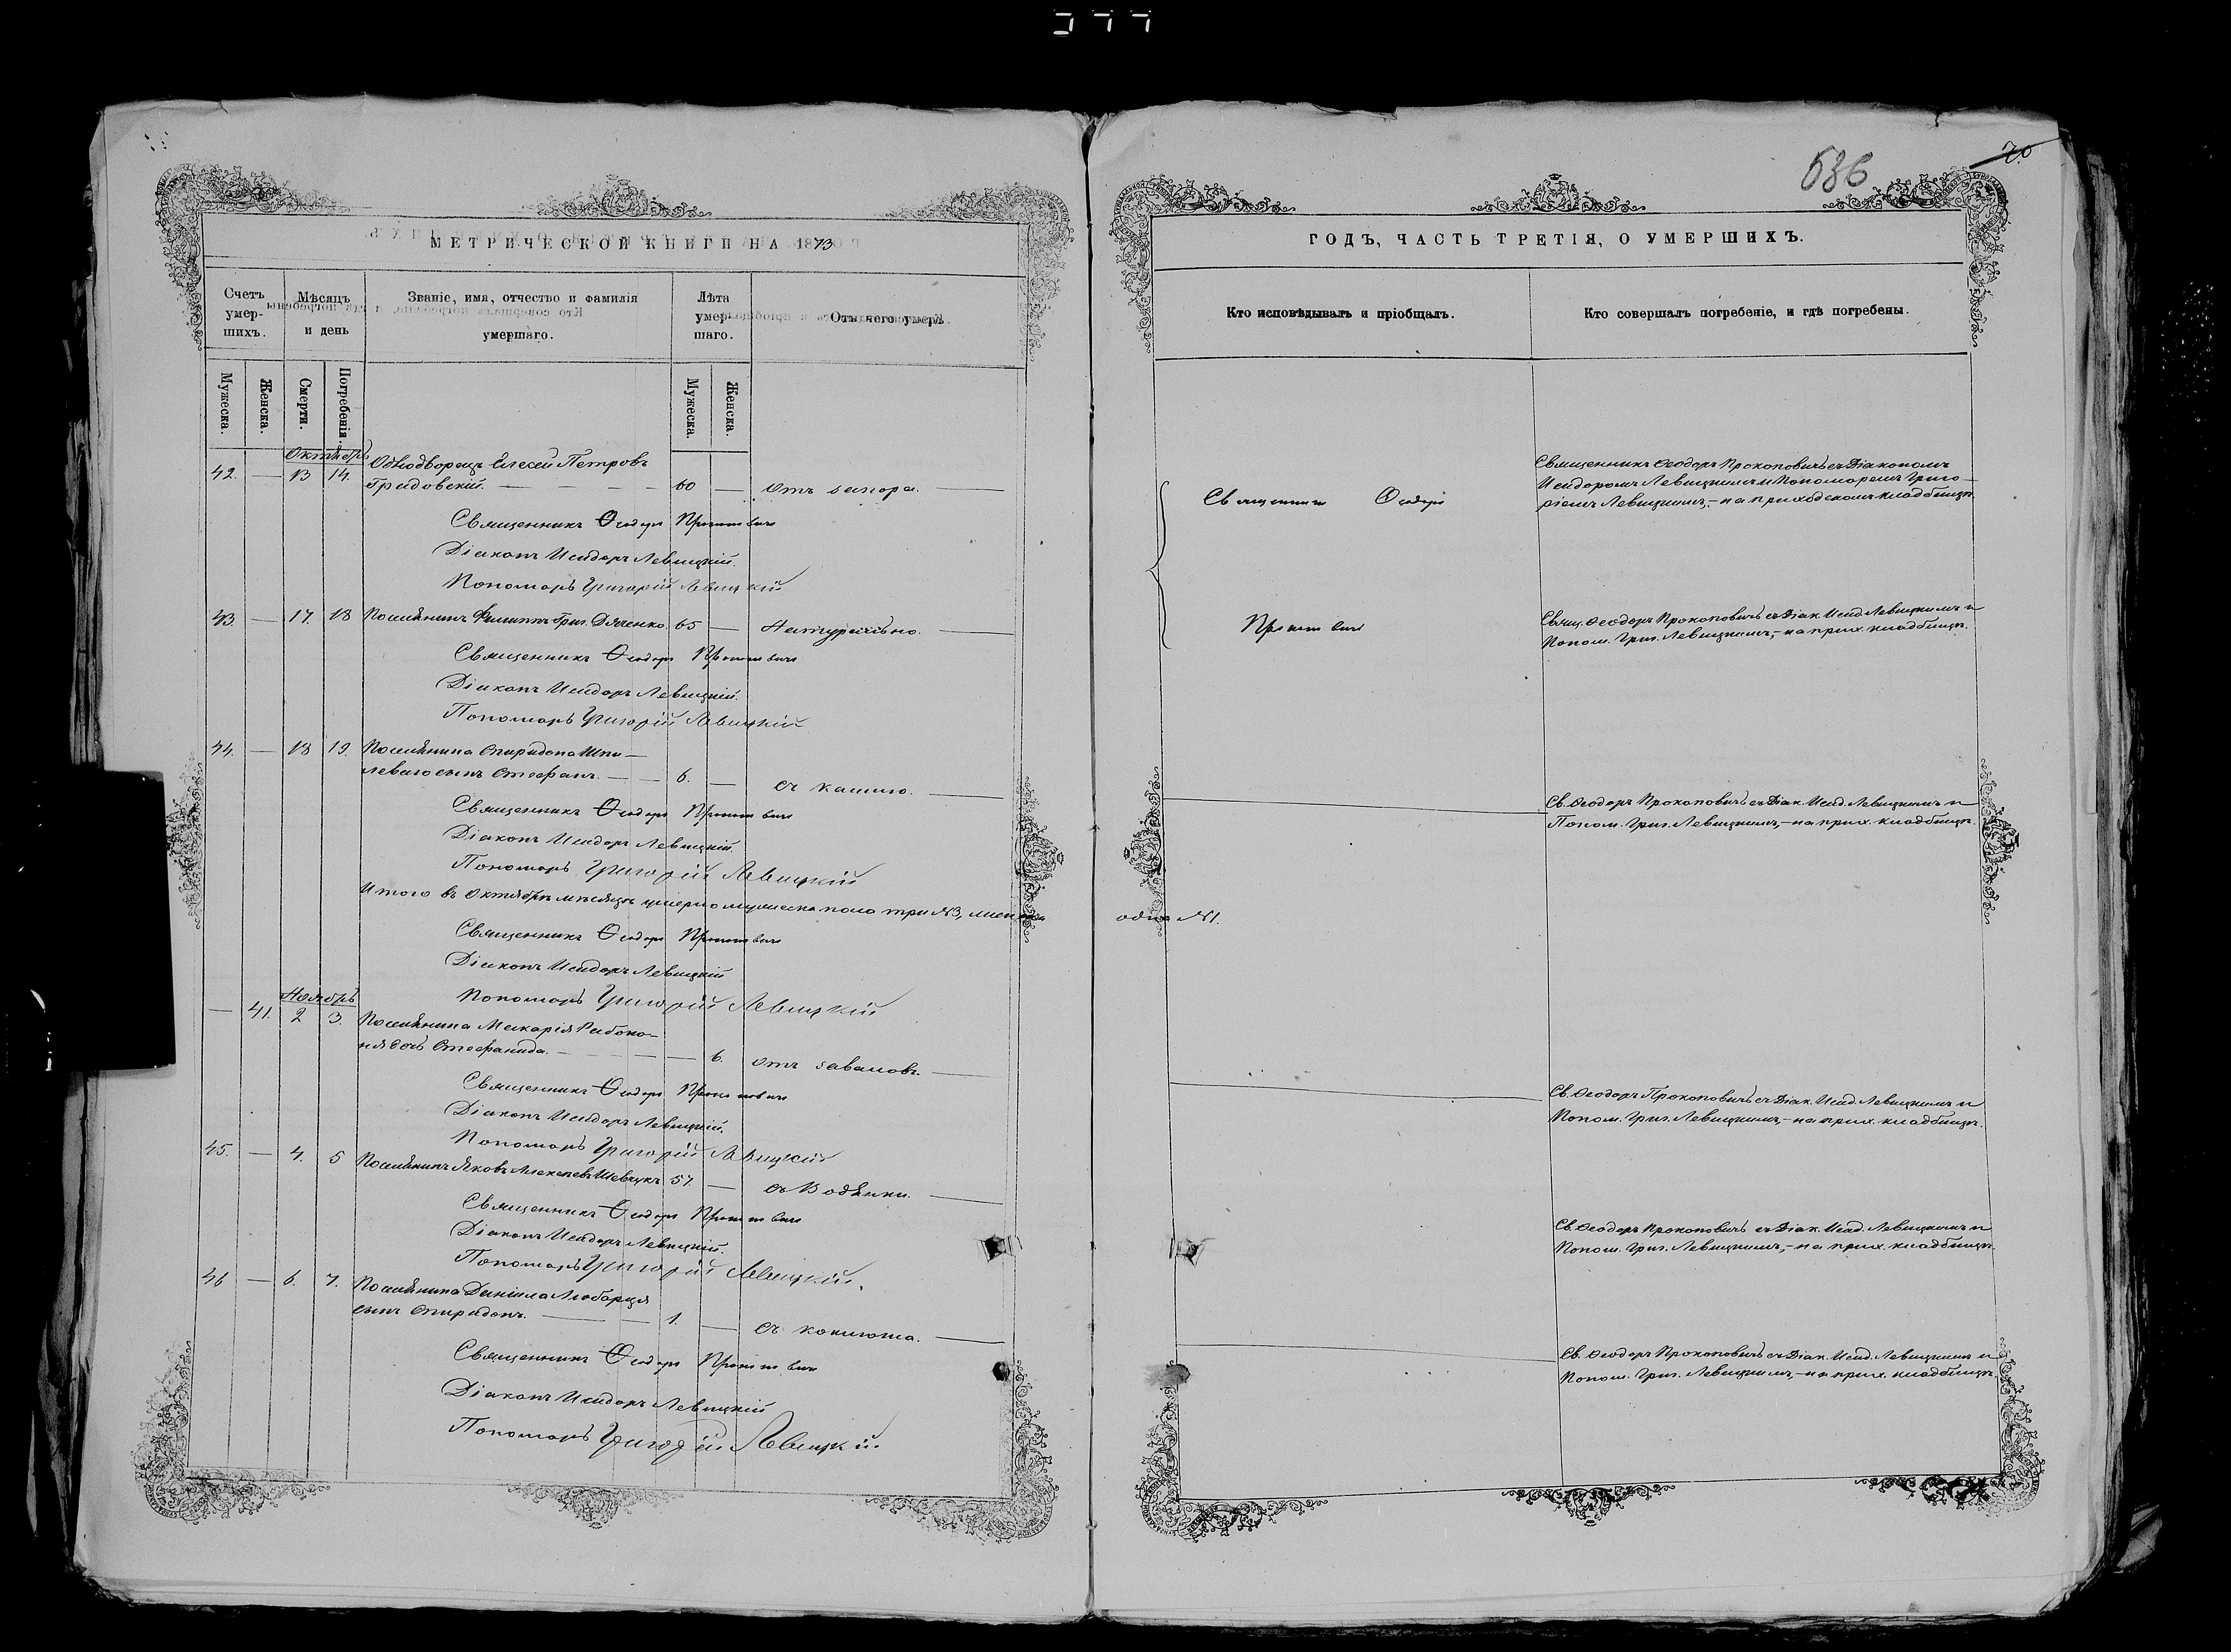 636
20
МЕТРИЧЕСКОЙ КНИГИ НА 1873
Счетъ умер-шихъ.
Мѣсяцъ и день
Званіе, имя, отчество и фамилія умершаго.
Лѣта умер-шаго.
Отъ чего умеръ.
Мужеска.
Женска.
Смерти.
Погребенія.
Мужеска.
Женска.
Октябрь
42. — 13 14. Однодворецъ Елисей Петровъ
Гридовскій. — 60 — отъ запора.
Священникъ Ѳеодоръ Прокоповичъ
Діаконъ Исидоръ Левицкій.
Пономарь Григорій Левицкій
43. — 17. 18 Поселянинъ Филиппъ Григ. Дяченко. 65 — Натурально.
Священникъ Ѳеодоръ Прокоповичъ
Діаконъ Исидоръ Левицкій.
Пономарь Григорій Левицкій
44. — 18 19. Поселянина Спиридона Шпи-
леваго сынъ Стефанъ. — 6. — съ кашлю.
Священникъ Ѳеодоръ Прокоповичъ
Діаконъ Исидоръ Левицкій.
Пономарь Григорій Левицкій
Итого въ Октябрѣ мѣсяцѣ умерло мужеска пола три №3, женска
одна №1.
Священникъ Ѳеодоръ Прокоповичъ
Діаконъ Исидоръ Левицкій
Пономарь Григорій Левицкій
Ноябрь
— 41. 2 3. Поселянина Макарія Рабоко-
ня дочь Стефанида. — 6. отъ
Священникъ Ѳеодоръ Прокоповичъ
Діаконъ Исидоръ Левицкій.
Пономарь Григорій Левицкій
45. — 4. 5 Поселянинъ Яковъ Алексѣевъ Шевчукъ 57. — съ Водянки.
Священникъ Ѳеодоръ Прокоповичъ
Діаконъ Исидоръ Левицкій.
Пономарь Григорій Левицкій.
46 — 6. 7. Поселянина Даніила Любарця
сынъ Спиридонъ. — 1. — съ
Священникъ Ѳеодоръ Прокоповичъ
Діаконъ Исидоръ Левицкій
Пономарь Григорій Левицкій
ГОДЪ, ЧАСТЬ ТРЕТІЯ, О УМЕРШИХЪ.
Кто исповѣдывалъ и пріобщалъ.
Кто совершалъ погребеніе, и гдѣ погребены.
Священникъ Ѳеодоръ
Прокоповичъ
Священникъ Ѳеодоръ Прокоповичъ съ Діакономъ
Исидоромъ Левицкимъ и Пономаремъ Григо-
ріемъ Левицкимъ, — на приходскомъ кладбищѣ.
Свящ. Ѳеодоръ Прокоповичъ съ Діак. Исид. Левицкимъ и
Поном. Григ. Левицкимъ, — на прих. кладбищѣ.
Св. Ѳеодоръ Прокоповичъ съ Діак. Исид. Левицкимъ и
Поном. Григ. Левицкимъ, — на прих. кладбищѣ.
Св. Ѳеодоръ Прокоповичъ съ Діак. Исид. Левицкимъ и
Поном. Григ. Левицкимъ, — на прих. кладбищѣ.
Св. Ѳеодоръ Прокоповичъ съ Діак. Исид. Левицкимъ и
Поном. Григ. Левицкимъ, — на прих. кладбищѣ.
Св. Ѳеодоръ Прокоповичъ съ Діак. Исид. Левицкимъ и
Поном. Григ. Левицкимъ, — на прих. кладбищѣ.